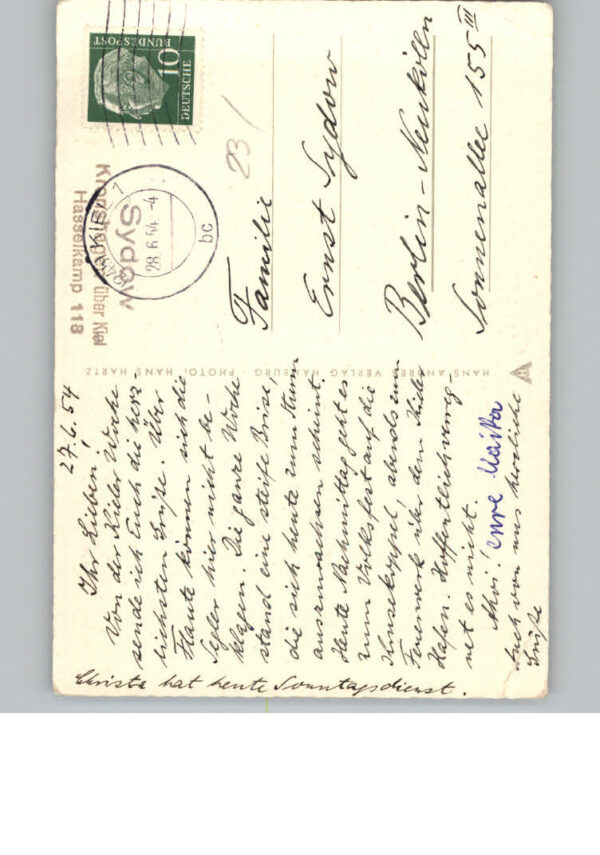 27.6.54
Ihr Lieben,
Von der Kieler Woche
sende ich Euch die herz-
lichsten Grüße. Über
Flaute können sich die
Segler hier nicht be-
klagen. Die ganze Woche
stand eine steife Brise,
die sich heute zum Sturm
auszuwachsen scheint.
Heute Nachmittag geht es
zum Volksfest auf die
Krusekoppel, abends zum
Feuerwerk über dem Kieler
Hafen. Hoffentlich reg-
net es nicht.
Ahoi! Eure
Auch von uns herzliche
Grüße
Christa hat heute Sonntagsdienst.
HANS ANDRES VERLAG HAMBURG · PHOTO: HANS HARTZ
DEUTSCHE
BUNDESPOST
10
KIEL 1
28.6.54.-4
bc
Sydow
Kronshagen über Kiel
Hasselkamp 118
23/
Familie
Ernst Sydow
Berlin-Neukölln
Sonnenallee 155 III